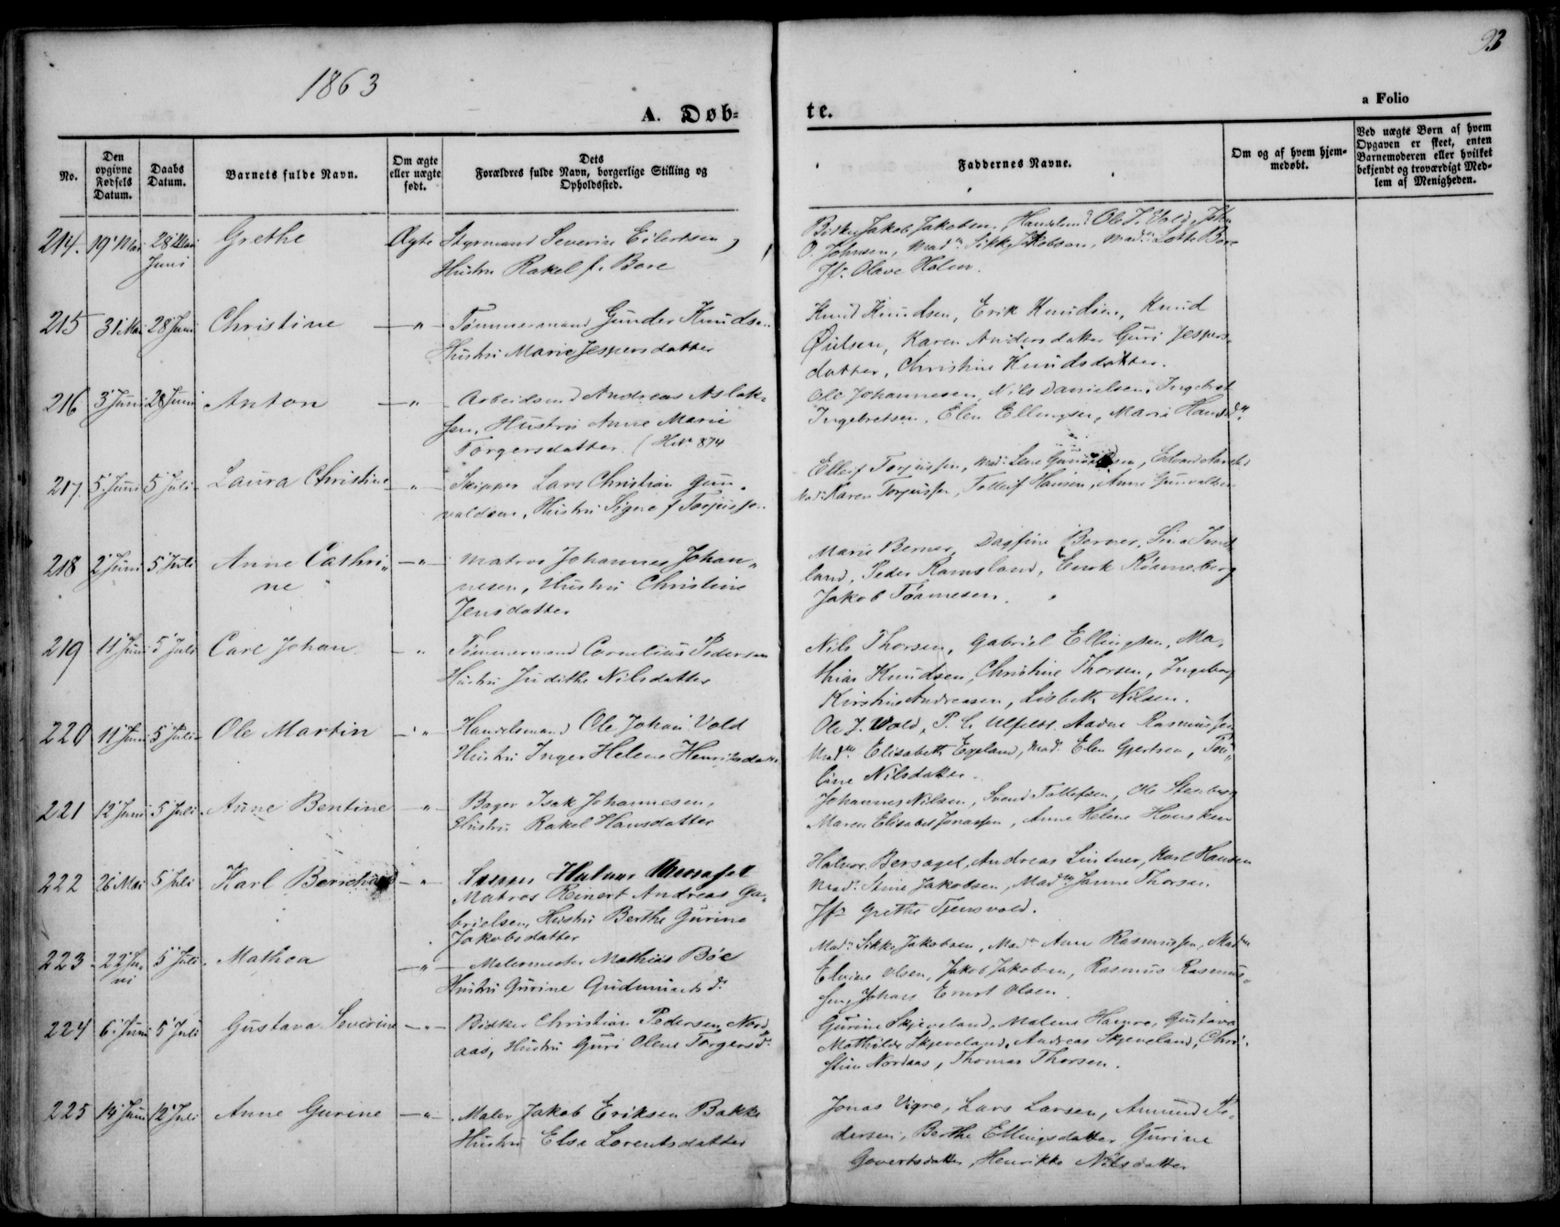 93
1863
a Folio
A. Døb=
te.
No.
Den opgivne Fødsels Datum.
Daabs Datum.
Barnets fulde Navn.
Om ægte eller uægte født.
Dets Forældres fulde Navn, borgerlige Stilling og Opholdssted.
Faddernes Navne.
Om og af hvem hjemmedøbt.
Ved uægte Børn af hvem Opgaven er skeet, enten Barnemoderen eller hvilket bekjendt og troværdigt Medlem af Menigheden.
214. 19 Mai 28 Juni Grethe Ægte Styrmand Severin Eilertsen,
Hustru Rakel f. Bore
Jakob Jakobsen, Ole J. Vold, John
O. Johnsen, Mad. Sikke Jakobsen, Mad. Lotte Bore
Jfr. Olave Holm.
215 31 Mai 28 Juni Christine —"— Tømmermand Gunder Knudsen
Hustru Marie Jespersdatter
Knud Knudsen, Erik Knudsen, Knud
Karen Andersdatter Guri Jespers-
datter, Christine Knudsdatter.
216 3 Juni 28 Juni Anton —"— Arbeidsmd Andreas Aslak-
sen, Hustru Anne Marie
Torgersdatter
Ole Johannesen, Nils Danielsen, Ingebret
Ingebretsen, Elen Ellingsen, Marie
217. 5 Juni 5 Juli Laura Christine —"— Skipper Lars Christian Gun-
valdsen, Hustru Signe f Torjussen
Ellef Torjussen, Mad. Lene
Mad. Karen Torjussen, Tollef Hansen, Anne
218 2 Juni 5 Juli Anne Cathri-
ne —"— Matros Johannes Johan-
nesen, Hustru Christine
Jensdatter
Marie Berner, Dagfine Berner,
land, Peder Ramsland,
Jakob Tønnesen.
219 11 Juni 5 Juli Carl Johan —"— Tømmermand Cornelius Pedersen
Hustru Judithe Nilsdatter
Nils Thorsen, Gabriel Ellingsen, Ma-
thias Knudsen, Christine Thorsen, Ingeborg
Kirstine Andreasen, Lisbeth Nilsen.
220 11 Juni 5 Juli Ole Martin —"— Handelsmand Ole Johan Vold
Hustru Inger Helene Henriksdatter
Ole J. Vold, P. C. Ulfeldt, Aadne Rasmussen
Mad. Elisabeth Egeland, Mad. Elen Gjertsen,
line Nilsdatter.
221 12 Juni 5 Juli Anne Bentine —"— Bager Isak Johannesen,
Hustru Rakel Hansdatter
Johannes Nilsen, Svend Tollefsen, Ole Stenberg
Maren Elisabet Jonassen, Anne Helene
222 26 Mai 5 Juli Karl —"— Matros Reinert Andreas Ga-
brielsen, Hustru Berthe Gurine
Jakobsdatter
Halvor Bersagel, Andreas Lintner, Karl Hansen
Mad. Stine Jakobsen, Mad. Janne Thorsen
Jfr. Grethe Tjensvold.
223 22 Ju-
ni 5 Juli Mathea —"— Malermester Mathias Bøe
Hustru Gurine Gudmundsd.
Mad. Sikke Jakobsen, Mad. Anne Rasmussen,
Elvine Olsen, Jakob Jakobsen, Rasmus Rasmus-
sen, Johan Ernst Olsen
224 6 Juni 5 Juli Gustava Severine —"— Bødker Christian Pedersen Nord
aas, Hustru Guri Olene Torgersd.
Gurine Skjeveland, Malene Hamre, Gustava
Mathilde Skjeveland, Andreas Skjeveland, Chri-
stian Nordaas, Thomas Thorsen.
225 14 Juni 12 Juli Anne Gurine —"— Maler Jakob Eriksen Bakke
Hustru Elsa Lorentsdatter
Jonas Vigre, Lars Larsen, Amund Pe-
dersen, Berthe Ellingsdatter Gurine
Govertsdatter, Henrikke Nilsdatter